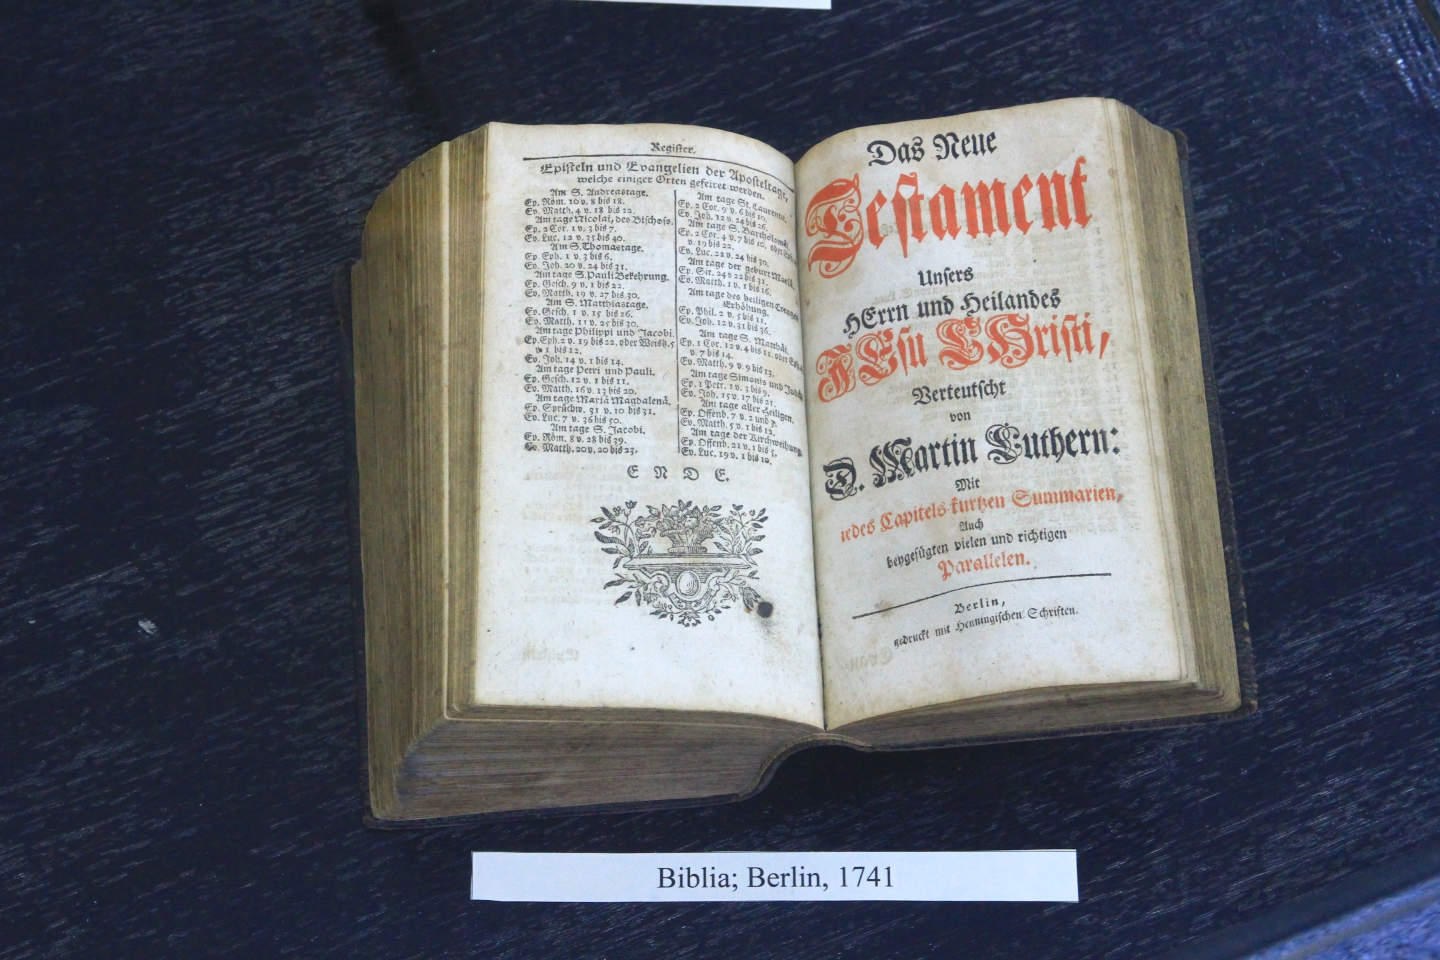 Register.
Episteln und Evangelien der Aposteltage,
welche einiger Orten gefeiret werden.
Am S. Andreastage.
Ep. Röm. 10 v. 8 bis 18.
Ev. Matth. 4 v. 18 bis 22.
Am tage Nicolai, des Bischofs.
Ep. 2 Cor. 1 v. 3 bis 7.
Ev. Luc. 12 v. 35 bis 40.
Am S. Thomastage.
Ep. Eph. 1 v. 3 bis 6.
Ev. Joh. 20 v. 24 bis 31.
Am tage S. Pauli Bekehrung.
Ep. Gesch. 9 v. 1 bis 22.
Ev. Matth. 19 v. 27 bis 30.
Am S. Matthiastage.
Ep. Gesch. 1 v. 15 bis 26.
Ev. Matth. 11 v. 25 bis 30.
Am tage Philippi und Jacobi.
Ep. Eph. 2 v. 19 bis 22. oder Weish. 5
v. 1 bis 12.
Ev. Joh. 14 v. 1 bis 14.
Am tage Petri und Pauli.
Ep. Gesch. 12 v. 1 bis 11.
Ev. Matth. 16 v. 13 bis 20.
Am tage Mariä Magdalenä.
Ep. Sprüchw. 31 v. 10 bis 31.
Ev. Luc. 7 v. 36 bis 50.
Am tage S. Jacobi.
Ep. Röm. 8 v. 28 bis 39.
Ev. Matth. 20 v. 20 bis 23.
Am tage St. Laurentii.
Ep. 2 Cor. 9 v. 6 bis 10.
Ev. Joh. 12 v. 24 bis 26.
Am tage S. Bartholomäi
Ep. 2 Cor. 4 v. 7 bis 10. oder
v. 19 bis 22.
Ev. Luc. 22 v. 24 bis 30.
Am tage der geburt Mariä.
Ep. Sir. 24 v. 22 bis 31.
Ev. Matth. 1 v. 1 bis 16.
Am tage des heiligen Creutzes
Erhöhung.
Ep. Phil. 2 v. 5 bis 11.
Ev. Joh. 12 v. 31 bis 36.
Am tage S. Matthäi.
Ep. 1 Cor. 12 v. 4 bis 11. oder
v. 7 bis 14.
Ev. Matth. 9 v. 9 bis 13.
Am tage Simonis und Judä
Ep. 1 Petr. 1 v. 3 bis 9.
Ev. Joh. 15 v. 17 bis 21.
Am tage aller Heiligen.
Ep. Offenb. 7 v. 2 und
Ev. Matth. 5 v. 1 bis 12.
Am tage der Kirchweihung
Ep. Offenb. 21 v. 1 bis 5.
Ev. Luc. 19 v. 1 bis 10.
E N D E.
Das Neue
Testament
Unsers
HErrn und Heilandes
JEsu CHristi,
Verteutscht
von
D. Martin Luthern:
Mit
iedes Capitels kurtzen Summarien,
Auch
beygefügten vielen und richtigen
Parallelen.
Berlin,
gedruckt mit Henningischen Schriften.
Biblia; Berlin, 1741